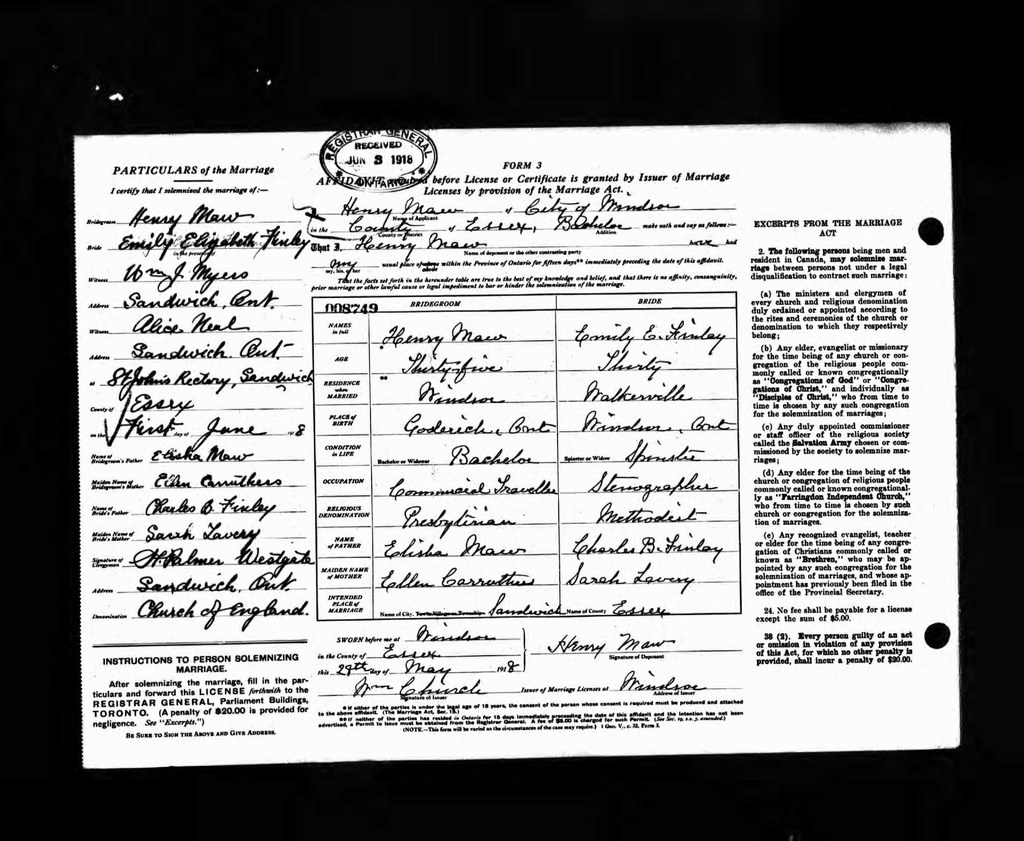 PARTICULARS of the Marriage
I certify that I solemnized the marriage of:—
Bridegroom Henry Maw
Bride Emily Elizabeth Finley
(in the presence of)
Witness Wm J. Myers
Address Sandwich, Ont.
Witness Alice Neal
Address Sandwich. Ont.
at St John's Rectory, Sandwich
County of Essex
on the First day of June 1918
Name of Bridegroom's Father Elisha Maw
Maiden Name of Bridegroom's Mother Ellen Carruthers
Name of Bride's Father Charles B. Finley
Maiden Name of Bride's Mother Sarah Lavery
Signature of Clergyman H. Palmer Westgate
Address Sandwich, Ont.
Denomination Church of England.
INSTRUCTIONS TO PERSON SOLEMNIZING
MARRIAGE.
After solemnizing the marriage, fill in the par-
ticulars and forward this LICENSE forthwith to the
REGISTRAR GENERAL, Parliament Buildings,
TORONTO. (A penalty of $20.00 is provided for
negligence. See "Excerpts.")
BE SURE TO SIGN THE ABOVE AND GIVE ADDRESS.
REGISTRAR GENERAL
RECEIVED
JUN 3 1918
ONTARIO
FORM 3
AFFIDAVIT required before License or Certificate is granted by Issuer of Marriage
Licenses by provision of the Marriage Act.
I, Henry Maw of City of Windsor
Name of Applicant
in the County of Essex, Bachelor make oath and say as follows:—
County or District Addition
That I, Henry Maw have had
Name of deponent or the other contracting party
my usual place of abode within the Province of Ontario for fifteen days** immediately preceding the date of this affidavit.
my, his, or her
That the facts set forth in the hereunder table are true to the best of my knowledge and belief, and that there is no affinity, consanguinity,
prior marriage or other lawful cause or legal impediment to bar or hinder the solemnization of the marriage.
008749 BRIDEGROOM BRIDE
NAMES in full Henry Maw Emily E. Finlay
AGE Thirty-five Thirty
RESIDENCE when MARRIED ** Windsor Walkerville
PLACE of BIRTH Goderich, Ont Windsor, Ont
CONDITION in LIFE Bachelor or Widower Bachelor Spinster or Widow Spinster
OCCUPATION Commercial Traveller Stenographer
RELIGIOUS DENOMINATION Presbyterian Methodist
NAME of FATHER Elisha Maw Charles B. Finlay
MAIDEN NAME of MOTHER Ellen Carruthers Sarah Lavery
INTENDED PLACE of MARRIAGE Name of City, Town, Village, or Township Sandwich Name of County Essex
SWORN before me at Windsor
in the County of Essex
this 29th day of May 1918
Henry Maw
Signature of Deponent
Wm Church Issuer of Marriage Licenses at Windsor
Signature of Issuer Address of Issuer
* If either of the parties is under the legal age of 18 years, the consent of the person whose consent is required must be produced and attached
to the above affidavit. (The Marriage Act, Sec. 15.)
** If neither of the parties has resided in Ontario for 15 days immediately preceding the date of this affidavit and the intention has not been
advertised, a Permit to Issue must be obtained from the Registrar General. A fee of $5.00 is charged for such Permit.
(NOTE.—This form will be varied as the circumstances of the case may require.) 1 Geo. V., c. 32, Form 3.
EXCERPTS FROM THE MARRIAGE
ACT
2. The following persons being men and
resident in Canada, may solemnize mar-
riage between persons not under a legal
disqualification to contract such marriage:
(a) The ministers and clergymen of
every church and religious denomination
duly ordained or appointed according to
the rites and ceremonies of the church or
denomination to which they respectively
belong;
(b) Any elder, evangelist or missionary
for the time being of any church or con-
gregation of the religious people com-
monly called or known congregationally
as "Congregations of God" or "Congre-
gations of Christ," and individually as
"Disciples of Christ," who from time to
time is chosen by any such congregation
for the solemnization of marriages;
(c) Any duly appointed commissioner
or staff officer of the religious society
called the Salvation Army chosen or com-
missioned by the society to solemnize mar-
riages;
(d) Any elder for the time being of the
church or congregation of religious people
commonly called or known congregational-
ly as "Farringdon Independent Church,"
who from time to time is chosen by any
such church or congregation for the solemniza-
tion of marriages.
(e) Any recognized evangelist, teacher
or elder for the time being of any congre-
gation of Christians commonly called or
known as "Brethren," who may be ap-
pointed by any such congregation for the
solemnization of marriages, and whose ap-
pointment has previously been filed in the
office of the Provincial Secretary.
24. No fee shall be payable for a license
except the sum of $5.00.
38 (2). Every person guilty of an act
or omission in violation of any provision
of this Act, for which no other penalty is
provided, shall incur a penalty of $20.00.